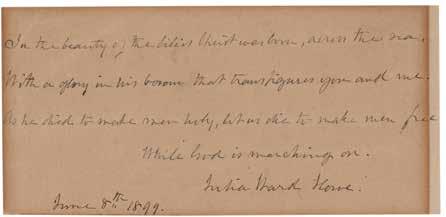 In the beauty of the lilies Christ was born, across the sea,
With a glory in his bosom that transfigures you and me.
As he died to make men holy, let us die to make men free
While God is marching on.
Julia Ward Howe.
June 8th 1899.